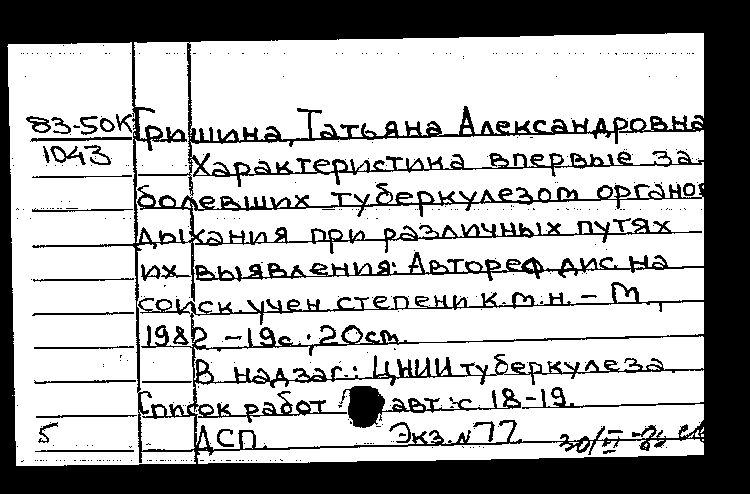 83-50К Гришина, Татьяна Александровна
1043 Характеристика впервые за-
болевших туберкулезом органов
дыхания при различных путях
их выявления: Автореф. дис. на
соиск. учен степени к.м.н. – М.,
1982. – 19с.; 20см.
В надзаг.: ЦНИИ туберкулеза.
Список работ авт.: с. 18-19.
5 ДСП. Экз. № 77.